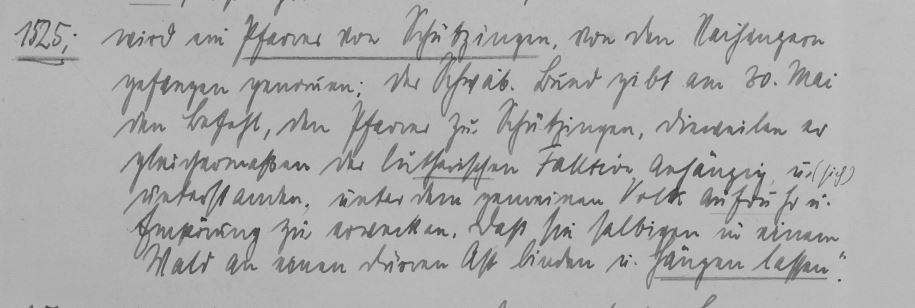 1525; wird ein Pfarrer von Schützingen, von den Vaihingern
gefangen genommen; der Schwäb. Bund gibt am 30. Mai
den Befehl, den Pfarrer zu Schützingen, dieweilen er
gleichermaßen der lutherischen Faktion anhängig u. (sich)
unterstanden, unter dem gemeinen Volk Aufruhr u.
Empörung zu erwecken. Daß sie selbigen in einem
Wald an einen dürren Ast binden u. hängen lassen".